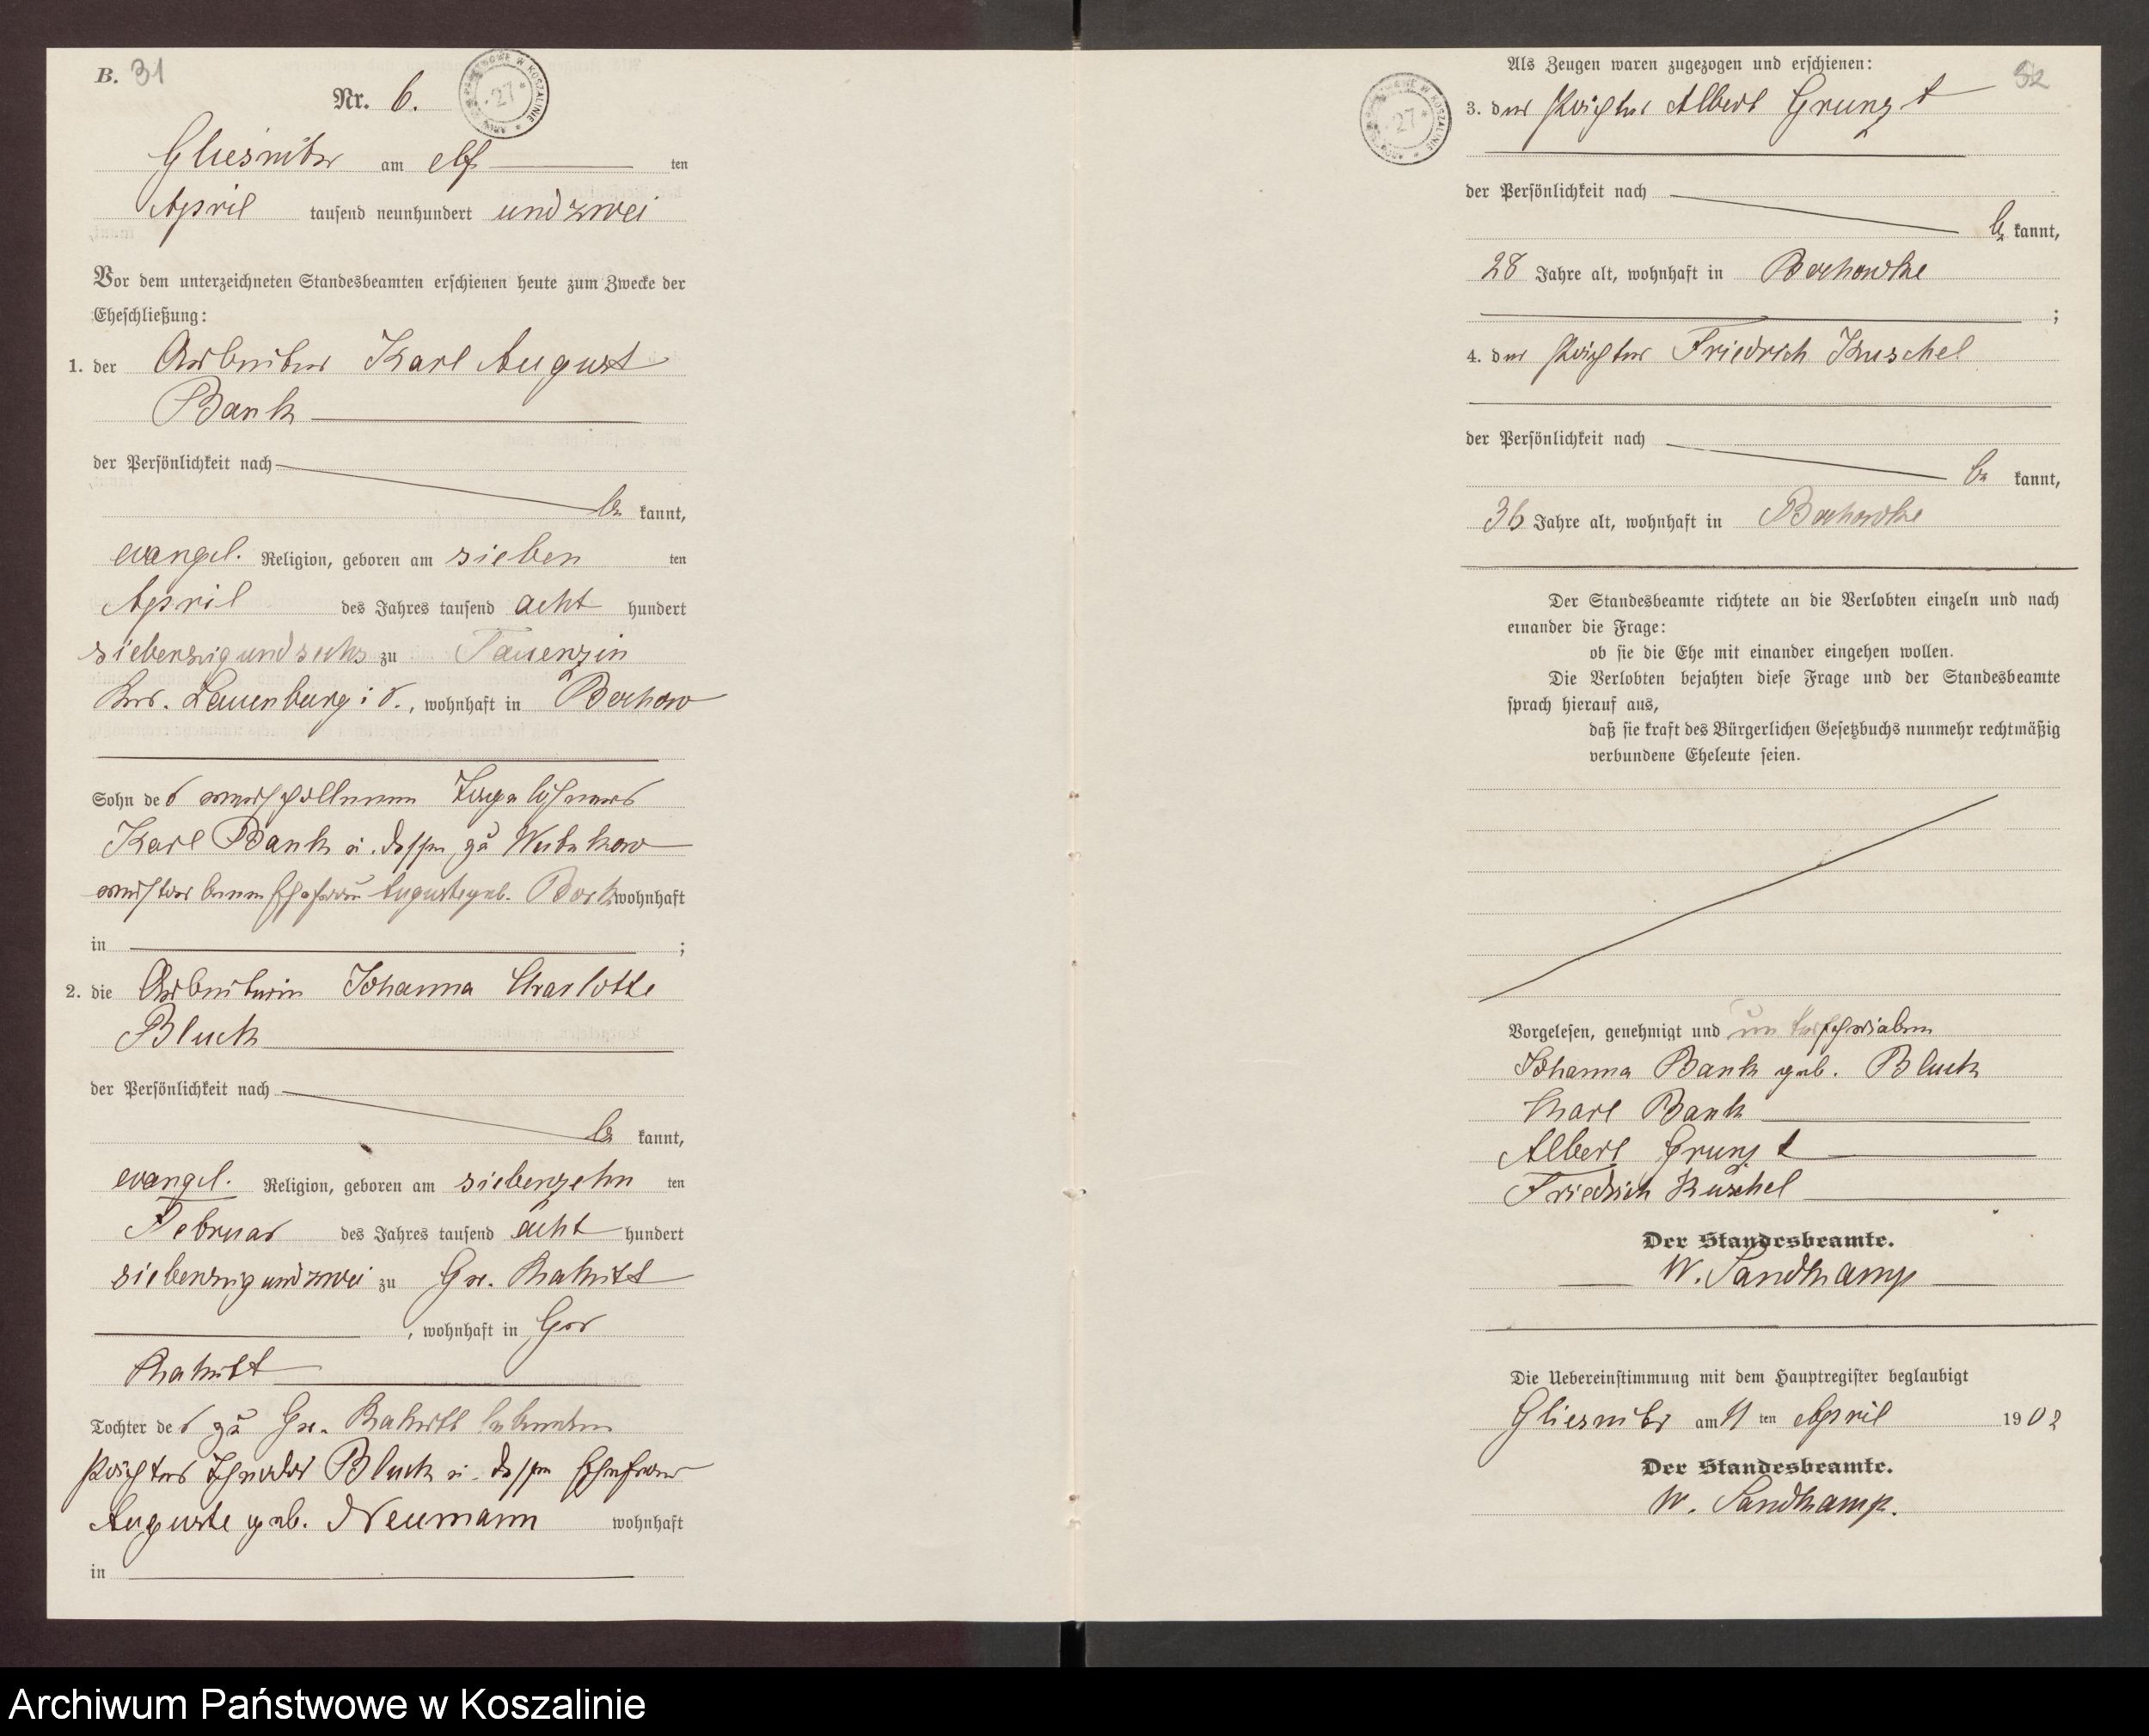 B. 31
Nr. 6.
27
Gliesnitz am elf ten
April tausend neunhundert und zwei
Vor dem unterzeichneten Standesbeamten erschienen heute zum Zwecke der
Eheschließung:
1. der Arbeiter Karl August
Bank
der Persönlichkeit nach
be kannt,
evangel. Religion, geboren am sieben ten
April des Jahres tausend acht hundert
siebenzig und sechs zu Tauenzin
Krs. Lauenburg i. , wohnhaft in Bochow
Sohn des verschollenen Tagelöhners
Karl Bank u. dessen zu
verstorbenen Ehefrau Auguste geb. wohnhaft
in ;
2. die Arbeiterin Johanna Charlotte
Bluck
der Persönlichkeit nach
be kannt,
evangel. Religion, geboren am siebenzehn ten
Februar des Jahres tausend acht hundert
siebenzig und zwei zu Gr. Rakitt
, wohnhaft in Gr
Rakitt
Tochter des zu Gr. Rakitt lebenden
Pächters Bluck u. dessen Ehefrau
Auguste geb. Neumann wohnhaft
in
Als Zeugen waren zugezogen und erschienen: 32
27
3. der Pächter Albert Grunzt
der Persönlichkeit nach
be kannt,
28 Jahre alt, wohnhaft in Bochowke
;
4. der Pächter Friedrich Kuschel
der Persönlichkeit nach
be kannt,
36 Jahre alt, wohnhaft in Bochowke
Der Standesbeamte richtete an die Verlobten einzeln und nach
einander die Frage:
ob sie die Ehe mit einander eingehen wollen.
Die Verlobten bejahten diese Frage und der Standesbeamte
sprach hierauf aus,
daß sie kraft des Bürgerlichen Gesetzbuchs nunmehr rechtmäßig
verbundene Eheleute seien.
Vorgelesen, genehmigt und unterschrieben
Johanna Bank geb. Bluck
Karl Bank
Albert Grunzt
Friedrich Kuschel
Der Standesbeamte.
W. Sandkamp
Die Uebereinstimmung mit dem Hauptregister beglaubigt
Gliesnitz am 11 ten April 19 02
Der Standesbeamte.
W. Sandkamp.
Archiwum Państwowe w Koszalinie